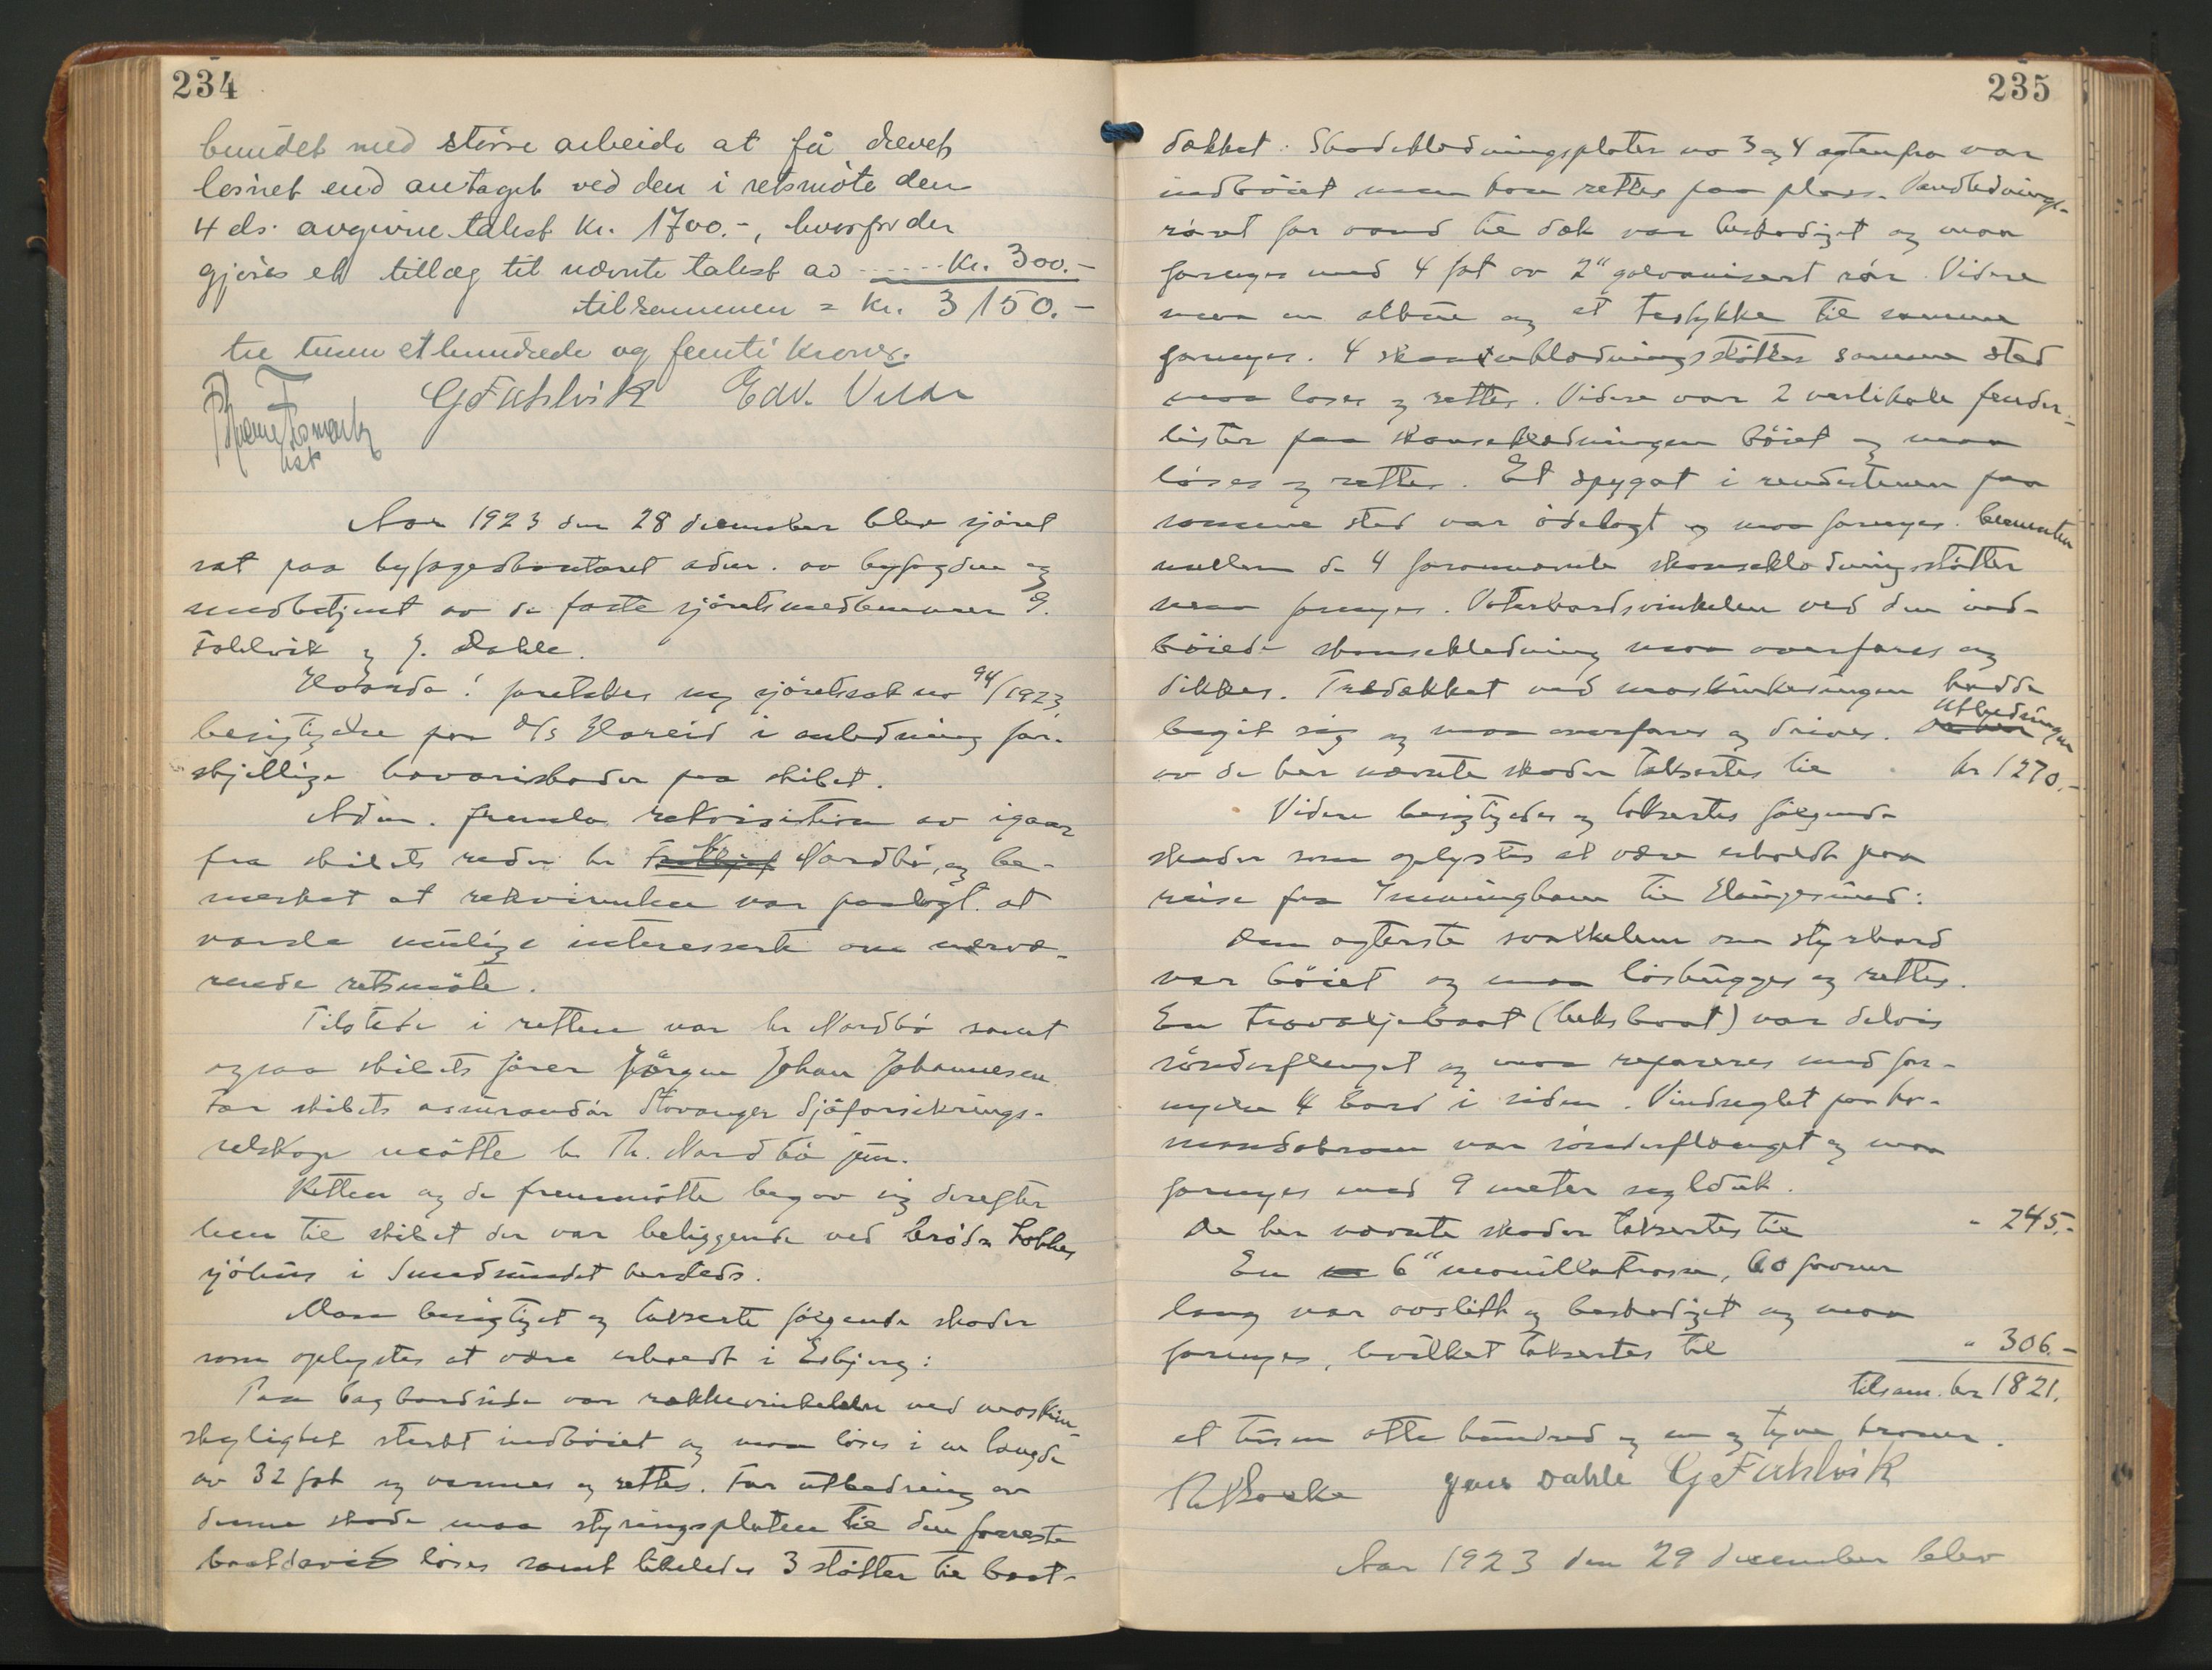 234
bundet med større arbeide at få drevet
løsnet end antaget ved den i retsmøte den
4 ds. avgivne takst kr. 1700.-, hvorfor der
gjøres et tillæg til nævnte takst av ...... Kr. 300.-
tilsammen = Kr. 3150.-
tre tusen et hundrede og femti kroner.
G Fahlvik Edv.
Aar 1923 den 28 december blev sjøret
sat paa byfogedkontoret adm. av byfogden og
medbetjent av de faste sjøretsmedlemmer G.
Fahlvik og J. Dahle.
Hvorda! foretokes ny sjøretssak no 94/1923,
besigtigelse paa D/S Hareid i anledning for-
skjellige havariskader paa skibet.
Adm. fremla rekvisition av igaar
fra skibets reder hr Nordbø, og be-
merket at rekvirenten var paalagt at
varsle mulige interesserte om nærvæ-
rende retsmøte.
Tilstede i retten var hr Nordbø samt
ogsaa skibets fører Jørgen Johan Johannesen.
For skibets assurandør Stavanger Sjøforsikrings-
selskap møtte hr Th. Nordbø jun.
Retten og de fremmøtte begav sig derefter
hen til skibet der var beliggende ved brødr
sjøhus i Smedsundet hersteds.
Man besigtiget og takserte følgende skader
som oplystes at være erholdt i Esbjerg:
Paa bagbordside var rækkevinkelen ved maskin-
skylightet sterkt indbøiet og maa løses i en længde
av 32 fot og varmes og rettes. For utbedring av
denne skade maa styringsplaten til den forreste
baatdavid løses samt likeledes 3 støtter til baat-
235
dækket. Skansekledningsplater no 3 og 4 agtenfra var
indbøiet men kan rettes paa plass. Vandlednings-
røret for vand til dæk var beskadiget og maa
fornyes med 4 fot av 2" galvanisert rør. Videre
maa en albue og et testykke til samme
fornyes. 4 skansekledningsstøtter samme sted
maa løses og rettes. Videre var 2 vertikale fender-
lister paa skansekledningen bøiet og maa
løses og rettes. Et spygat i rendestenen paa
samme sted var ødelagt og maa fornyes. Cementen
mellem de 4 forannævnte skanseklædningsstøtter
maa fornyes. Vaterbordsvinkelen ved den ind-
bøiede skanseklædning maa overfares og
dikkes. Trædækket ved maskinkasingen hadde
begit sig og maa overfares og drives. Utbedringen
av de her nævnte skader takseres til kr 1270.-
Videre besigtigedes og taksertes følgende
skader som oplystes at være erholdt paa
reise fra Immingham til Haugesund:
Den agterste svalkelem om styrbord
var bøiet og maa løsbygges og rettes.
En travaljebaat (leksbaat) var delvis
sønderflenget og maa repareres med for-
nyelse 4 bord i siden. Vindseglet paa ko-
mandobroen var sønderflænget og maa
fornyes med 9 meter segldūk.
De her nævnte skader takseres til " 245.-
En 6" manillatrosse, 60 favner
lang var avslitt og beskadiget og maa
fornyes, hvilket taksertes til " 306.-
tilsam. kr 1821.
et tusen otte hundred og en og tyve kroner.
Jens Dahle G Fahlvik
Aar 1923 den 29 december blev